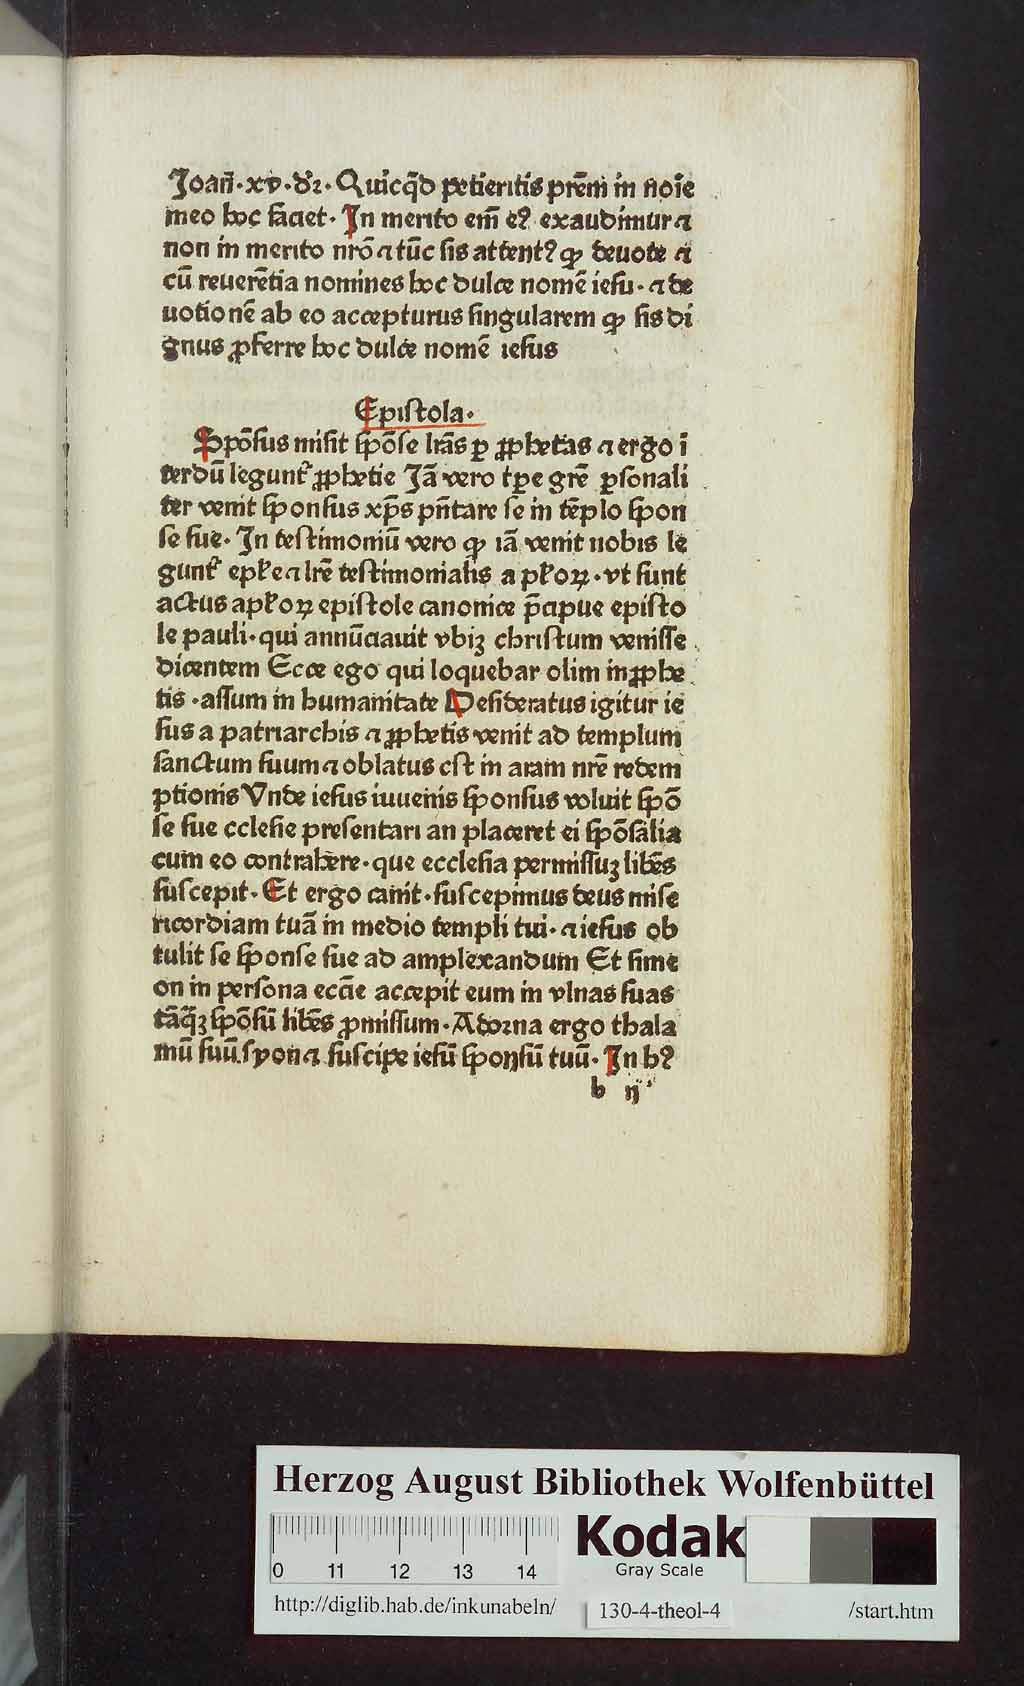 Joan̄·xv·dr̄· Quicq̄d petieritis prēm in noīe
meo hoc faciet· In merito em̄ eꝰ exaudimur ⁊
non in merito nrō ⁊ tūc sis attentꝰ ꝙ deuote ⁊
cū reuerētia nomines hoc dulce nomē iesu· ⁊ de
uotionē ab eo accepturus singularem ꝙ sis di
gnus ꝓferre hoc dulce nomē iesus
Epistola·
Spōsus misit spōse lrās ꝑ ꝓphetas ⁊ ergo ī
terdū legunt᷑ ꝓphetie Jā vero tꝑe grē ꝑsonali
ter venit sponsus xp̄s pn̄tare se in tēplo spon
se sue· In testimoniū vero ꝙ iā venit nobis le
gunt᷑ epl̄e ⁊ lrē testimonialis apl̄oꝝ·vt sunt
actus apl̄oꝝ epistole canonice p̄cipue episto
le pauli·qui annūciauit vbiꝫ christum venisse
dicentem Ecce ego qui loquebar olim in ꝓphe
tis·assum in humanitate Desideratus igitur ie
sus a patriarchis ⁊ ꝓphetis venit ad templum
sanctum suum ⁊ oblatus est in aram nrē redem
ptionis Vnde iesus iuuenis sponsus voluit spō
se sue ecclesie presentari an placeret ei spōsalia
cum eo contrahere·que ecclesia permissuꝫ libēs
suscepit· Et ergo canit·suscepimus deus mise
ricordiam tuā in medio templi tui· ⁊ iesus ob
tulit se sponse sue ad amplexandum Et sime
on in persona eccīe accepit eum in vlnas suas
tāq̄ꝫ spōsū libēs ꝓmissum·Adorna ergo thala
mū suū syon ⁊ suscipe iesū sponsū tuū· In hꝰ
b ij
Herzog August Bibliothek Wolfenbüttel
Kodak
Gray Scale
0 11 12 13 14
http://diglib.hab.de/inkunabeln/ 130-4-theol-4 /start.htm